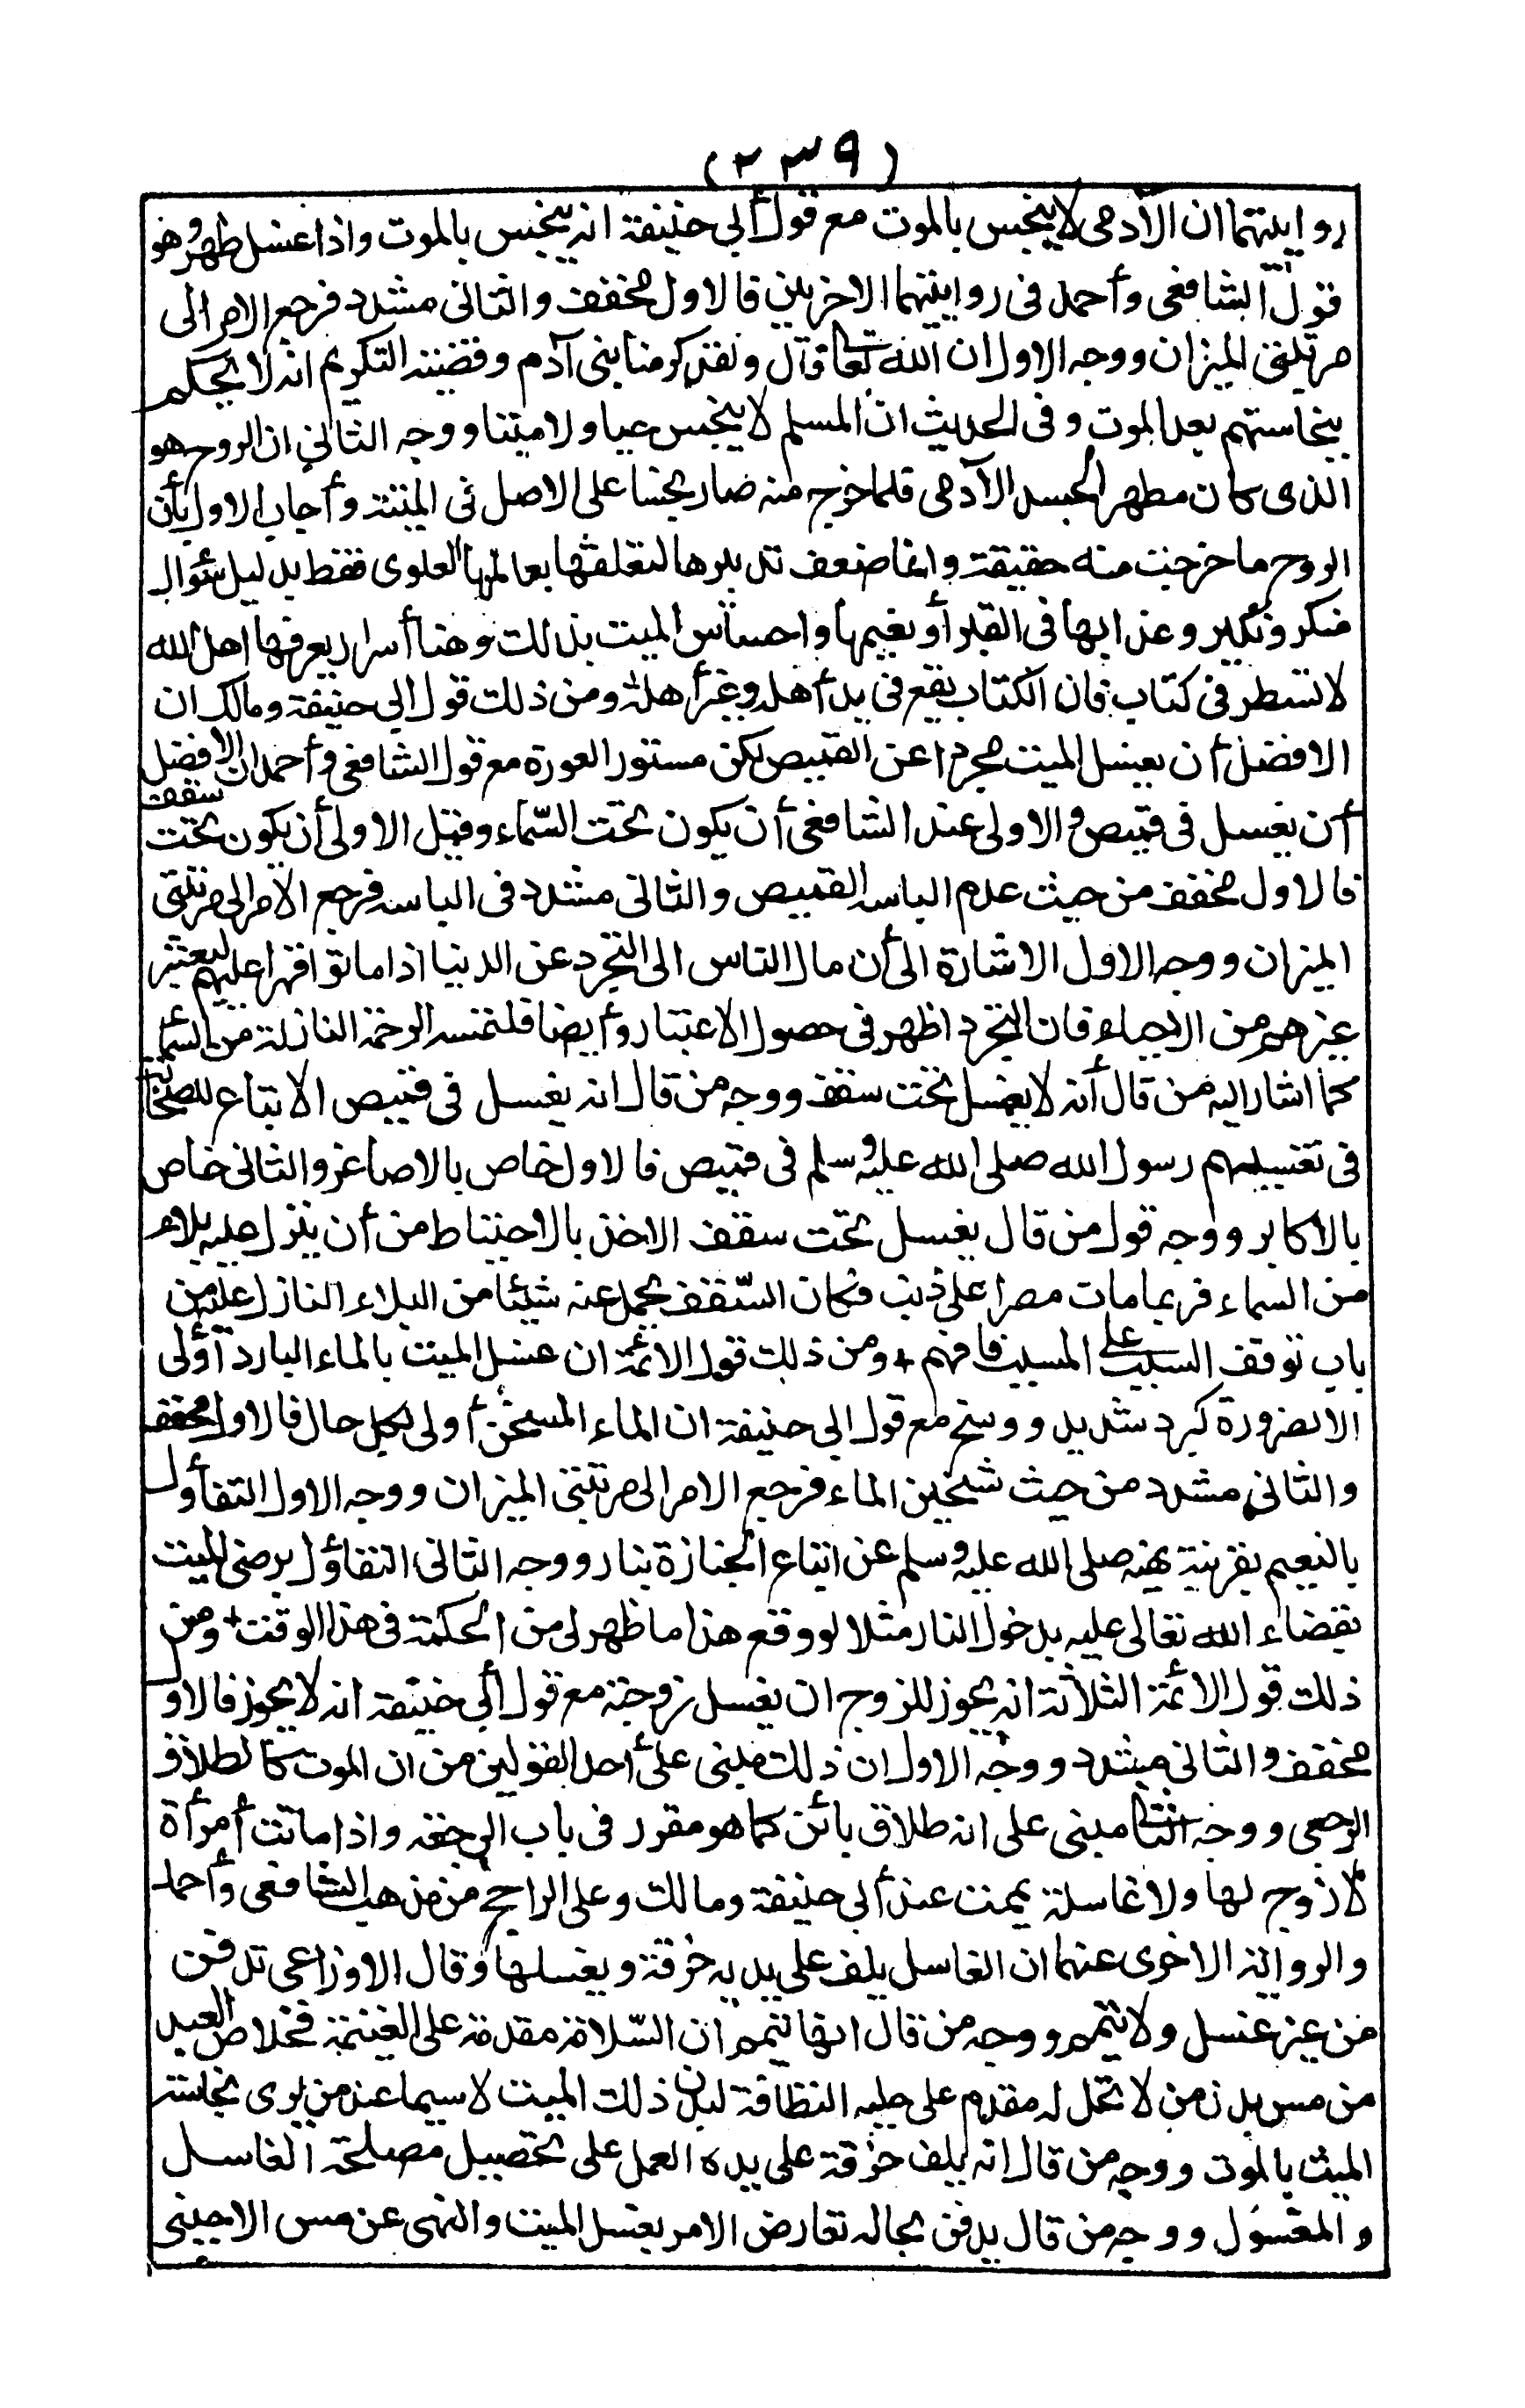 (٢٣٩)
روايتهما ان الآدمى لا ينجس بالموت مع قول أبى حنيفة انه ينجس بالموت واذا غسل طهر وهو
قول الشافعى وأحمد فى روايتهما الاخريين فالاول مخفف والثانى مشدد فرجع الامر الى
مرتبتى الميزان ووجه الاول ان الله تعالى قال ولقد كرمنا بنى آدم وقضية التكريم انه لا يحكم
بنجاستهم بعد الموت وفى الحديث ان المسلم لا ينجس حيا ولا ميتا ووجه الثانى ان الروح هو
الذى كان مطهر الجسد الآدمى فلما خرج منه صار نجسا على الاصل فى الميتة وأجاب الاول بأن
الروح ما خرجت منه حقيقة وانما ضعف تدبيرها لتعلقها بعالمها العلوى فقط بدليل سؤال
منكر ونكير وعذابها فى القبر أو نعيمها واحساس الميت بذلك وهنا أسرار يعرفها اهل الله
لا تسطر فى كتاب فان الكتاب يقع فى يد أهله وغير أهله ومن ذلك قول ابى حنيفة ومالك ان
الافضل أن يغسل الميت مجردا عن القميص لكن مستور العورة مع قول الشافعى وأحمد ان الافضل
أن يغسل فى قميص والاولى عند الشافعى أن يكون تحت السّماء وقيل الاولى أن يكون تحت سقف
فالاول مخفف من حيث عدم الباسه القميص والثانى مشدد فى الباسه فرجع الامر الى مرتبتى
الميزان ووجه الاول الاشارة الى أن مال الناس الى التجرد عن الدنيا اذا ماتوا قهرا عليهم ليعتبر
غيرهم من الاحياء فان التجرد اظهر فى حصول الاعتبار وأيضا فلتمسه الرحمة النازلة من السماء
كما اشار اليه من قال أنه لا يغسل تحت سقف ووجه من قال انه يغسل فى قميص الاتباع للصحابة
فى تغسيلهم رسول الله صلى الله عليه وسلم فى قميص فالاول خاص بالاصاغر والثانى خاص
بالاكابر ووجه قول من قال يغسل تحت سقف الاخذ بالاحتياط من أن ينزل عليه بلاء
من السماء فربما مات مصرا على ذنب فكان السّقف يحمل عنه شيئا من البلاء النازل عليه من
باب توقف السبب على المسبب فافهم + ومن ذلك قول الائمة ان غسل الميت بالماء البارد أولى
الا لضرورة كبرد شديد ووسخ مع قول ابى حنيفة ان الماء المسخن أولى بكل حال فالاول مخفف
والثانى مشدد من حيث تسخين الماء فرجع الامر الى مرتبتى الميزان ووجه الاول التفأول
بالنعيم بقرينة نهيه صلى الله عليه وسلم عن اتباع الجنازة بنار ووجه الثانى التفاؤل برضى الميت
بقضاء الله تعالى عليه بدخول النار مثلا لو وقع هذا ما ظهر لى من الحكمة فى هذا الوقت + ومن
ذلك قول الائمة الثلاثة انه يجوز للزوج ان يغسل زوجته مع قول أبى حنيفة انه لا يجوز فالاول
مخفف والثانى مشدد ووجه الاول ان ذلك مبنى على أحد القولين من ان الموت كالطلاق
الرجعى ووجه الثانى مبنى على انه طلاق بائن كما هو مقرر فى باب الرجعة واذا ماتت أمرأة
لا زوج لها ولا غاسلة يممت عند أبى حنيفة ومالك وعلى الراجح من مذهب الشافعى وأحمد
والرواية الاخرى عنهما ان الغاسل يلف على يديه خرقة ويغسلها وقال الاوزاعى تدفن
من غير غسل ولا تيمم ووجه من قال انها تيمم ان السّلامة مقدمة على الغنيمة فخلاص العبد
من مس بدن من لا تحل له مقدم على جلبه النظافة لبدن ذلك الميت لا سيما عند من يرى نجاسة
الميت بالموت ووجه من قال انه يلف خرقة على يده العمل على تحصيل مصلحة الغاسل
والمغسول ووجه من قال يدفن بحاله تعارض الامر بغسل الميت والنهى عن مس الاجنبى